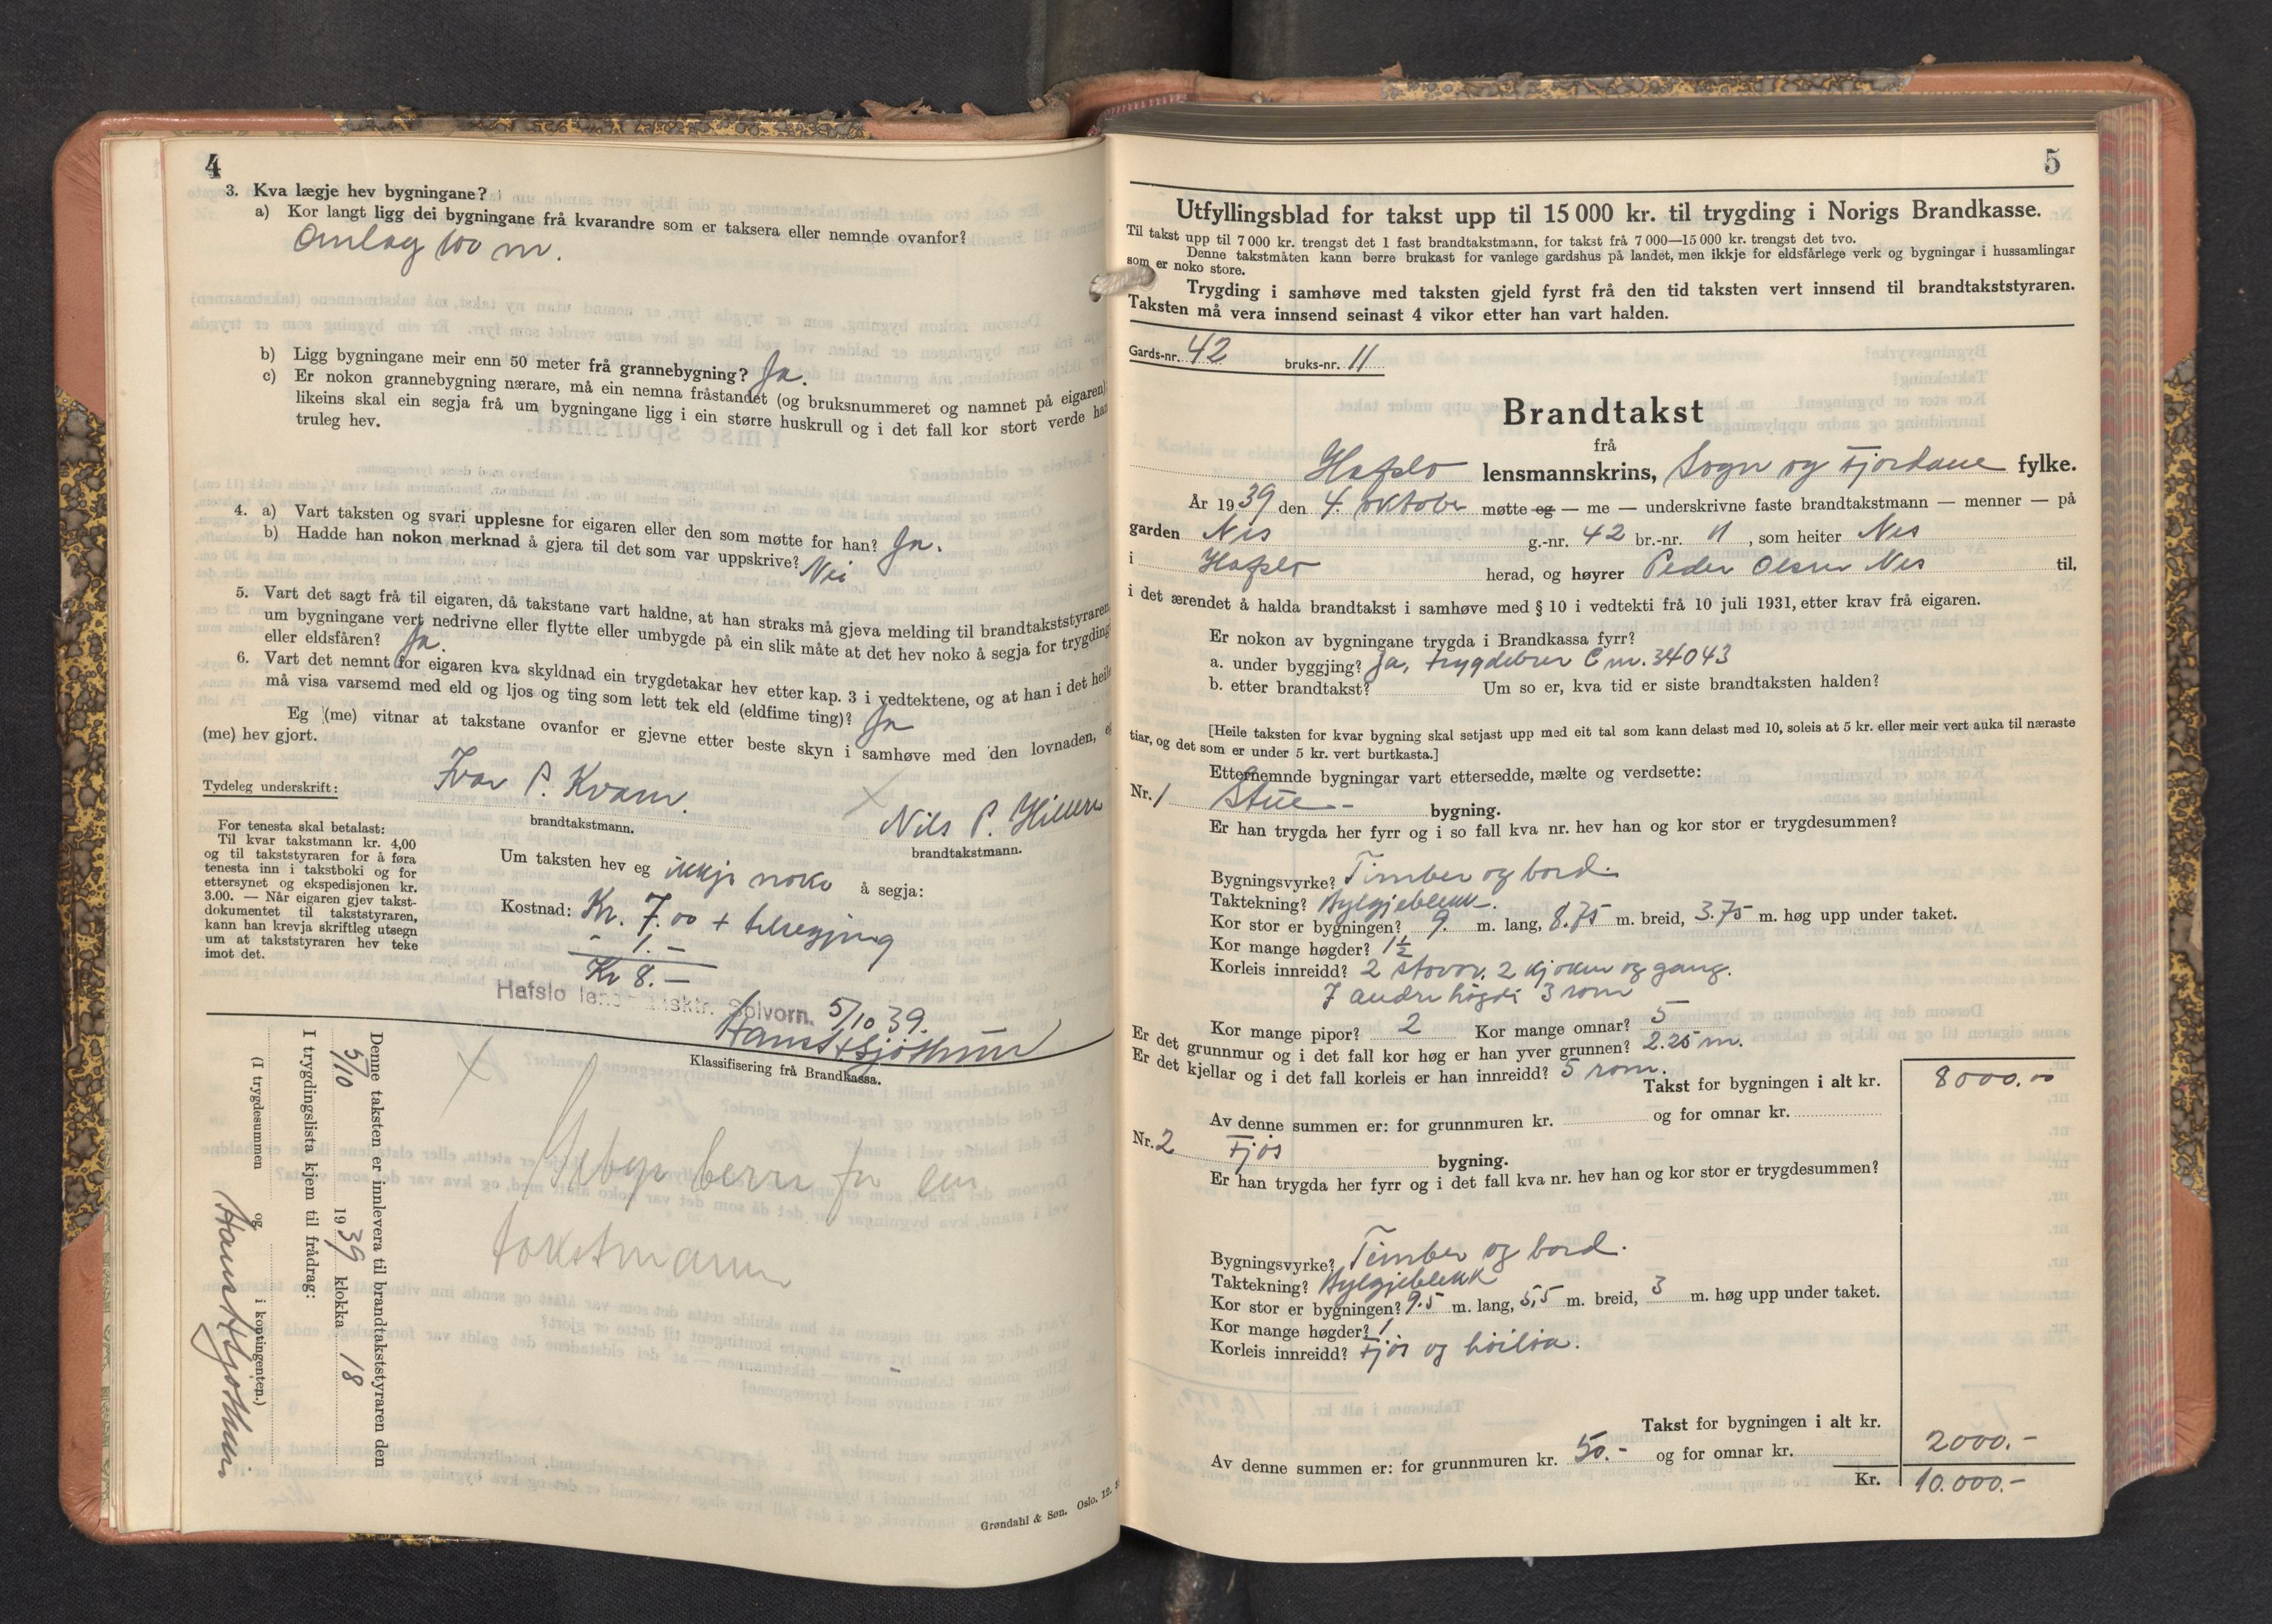 4
3. Kva lægje hev bygningane?
a) Kor langt ligg dei bygningane frå kvarandre som er taksera eller nemnde ovanfor?
Omlag 100 m.
b) Ligg bygningane meir enn 50 meter frå grannebygning? Ja.
c) Er nokon grannebygning nærare, må ein nemna fråstandet (og bruksnummeret og namnet på eigaren);
likeins skal ein segja frå um bygningane ligg i ein større huskrull og i det fall kor stort verde han
truleg hev.
4. a) Vart taksten og svari upplesne for eigaren eller den som møtte for han? Ja.
b) Hadde han nokon merknad å gjera til det som var uppskrive? Nei
5. Vart det sagt frå til eigaren, då takstane vart haldne, at han straks må gjeva melding til brandtakststyraren,
um bygningane vert nedrivne eller flytte eller umbygde på ein slik måte at det hev noko å segja for trygding
eller eldsfåren? Ja.
6. Vart det nemnt for eigaren kva skyldnad ein trygdetakar hev etter kap. 3 i vedtektene, og at han i det heile
må visa varsemd med eld og ljos og ting som lett tek eld (eldfime ting)? Ja
Eg (me) vitnar at takstane ovanfor er gjevne etter beste skyn i samhøve med den lovnaden, eg
(me) hev gjort.
Tydeleg underskrift: Ivar P. Kvam. Nils P. Hillern
brandtakstmann. brandtakstmann.
For tenesta skal betalast:
Til kvar takstmann kr. 4,00
og til takststyraren for å føra
tenesta inn i takstboki og for
ettersynet og ekspedisjonen kr.
3.00. — Når eigaren gjev takst-
dokumentet til takststyraren,
kann han krevja skriftleg utsegn
um at takststyraren hev teke
imot det.
Um taksten hev eg ikkje noko å segja:
Kostnad: Kr. 7.00 + tilsegjing
- 1.-
Kr 8.-
Hafslo Solvorn. 5/10 39.
Klassifisering frå Brandkassa.
Gebyr berre for ein
takstmann
Denne taksten er innlevera til brandtakststyraren den
5/10 1939 klokka 18
I trygdingslista kjem til frådrag:
(I trygdesummen og i kontingenten.)
Grøndahl & Søn. Oslo. 12.
5
Utfyllingsblad for takst upp til 15 000 kr. til trygding i Norigs Brandkasse.
Til takst upp til 7 000 kr. trengst det 1 fast brandtakstmann, for takst frå 7 000—15 000 kr. trengst det tvo.
Denne takstmåten kann berre brukast for vanlege gardshus på landet, men ikkje for eldsfårlege verk og bygningar i hussamlingar
som er noko store.
Trygding i samhøve med taksten gjeld fyrst frå den tid taksten vert innsend til brandtakststyraren.
Taksten må vera innsend seinast 4 vikor etter han vart halden.
Gards-nr. 42 bruks-nr. 11
Brandtakst
frå
Hafslo lensmannskrins, Sogn og Fjordane fylke.
År 1939 den 4. oktober møtte eg — me — underskrivne faste brandtakstmann — menner — på
garden Nes g.-nr. 42 br.-nr. 11, som heiter Nes
i Hafslo herad, og høyrer Peder Olsen Nes til,
i det ærendet å halda brandtakst i samhøve med § 10 i vedtekti frå 10 juli 1931, etter krav frå eigaren.
Er nokon av bygningane trygda i Brandkassa fyrr?
a. under byggjing? Ja, trygdebrev C nr. 34043
b. etter brandtakst? Um so er, kva tid er siste brandtaksten halden?
[Heile taksten for kvar bygning skal setjast upp med eit tal som kann delast med 10, soleis at 5 kr. eller meir vert auka til næraste
tiar, og det som er under 5 kr. vert burtkasta.]
Etternemnde bygningar vart ettersedde, mælte og verdsette:
Nr. 1 Stue- bygning.
Er han trygda her fyrr og i so fall kva nr. hev han og kor stor er trygdesummen?
Bygningsvyrke? Timber og bord.
Taktekning? Bylgjeblekk.
Kor stor er bygningen? 9. m. lang, 8.75 m. breid, 3.75 m. høg upp under taket.
Kor mange høgder? 1½
Korleis innreidd? 2 stovor, 2 kjøken og gang.
I andre høgdi 3 rom
Kor mange pipor? 2 Kor mange omnar? 5
Er det grunnmur og i det fall kor høg er han yver grunnen? 2.25 m.
Er det kjellar og i det fall korleis er han innreidd? 5 rom.
Takst for bygningen i alt kr. 8000.00
Av denne summen er: for grunnmuren kr. og for omnar kr.
Nr. 2 Fjøs bygning.
Er han trygda her fyrr og i det fall kva nr. hev han og kor stor er trygdesummen?
Bygningsvyrke? Timber og bord.
Taktekning? Bylgjeblekk
Kor stor er bygningen? 9.5 m. lang, 5,5 m. breid, 3 m. høg upp under taket.
Kor mange høgder? 1.
Korleis innreidd? Fjøs og høiløa.
Takst for bygningen i alt kr. 2000.-
Av denne summen er: for grunnmuren kr. 50.- og for omnar kr.
Kr. 10.000.-